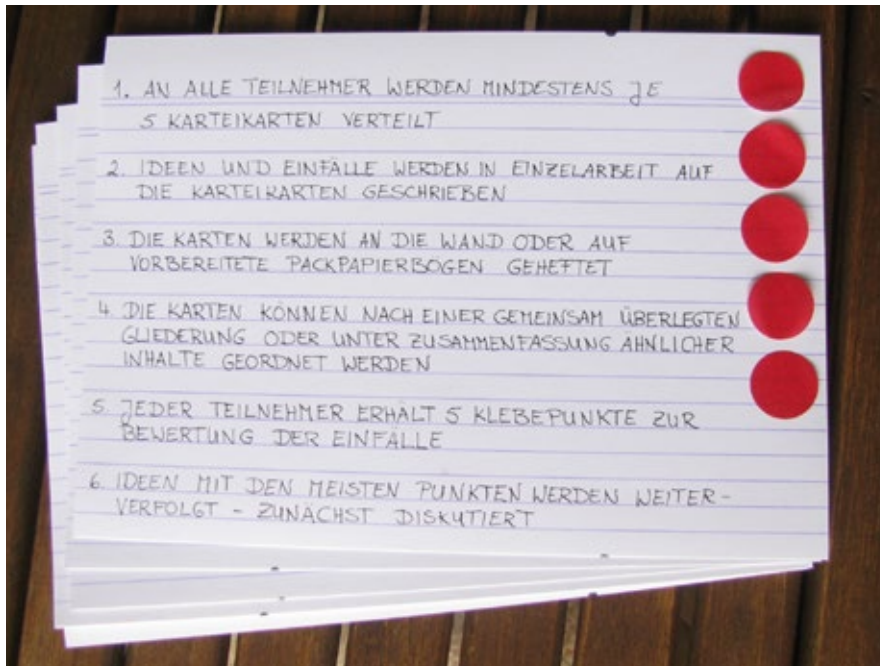 1. AN ALLE TEILNEHMER WERDEN MINDESTENS JE
5 KARTEIKARTEN VERTEILT
2. IDEEN UND EINFÄLLE WERDEN IN EINZELARBEIT AUF
DIE KARTEIKARTEN GESCHRIEBEN
3. DIE KARTEN WERDEN AN DIE WAND ODER AUF
VORBEREITETE PACKPAPIERBÖGEN GEHEFTET
4. DIE KARTEN KÖNNEN NACH EINER GEMEINSAM ÜBERLEGTEN
GLIEDERUNG ODER UNTER ZUSAMMENFASSUNG ÄHNLICHER
INHALTE GEORDNET WERDEN
5. JEDER TEILNEHMER ERHÄLT 5 KLEBEPUNKTE ZUR
BEWERTUNG DER EINFÄLLE
6. IDEEN MIT DEN MEISTEN PUNKTEN WERDEN WEITER-
VERFOLGT - ZUNÄCHST DISKUTIERT